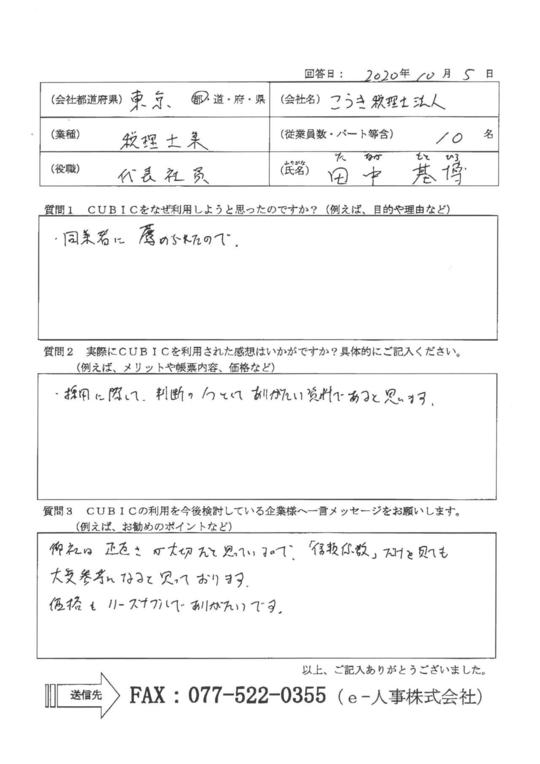 回答日： 2020年 10 月 5 日
（会社都道府県） 東京 都・道・府・県 （会社名） こうき税理士法人
（業種） 税理士業 （従業員数・パート等含） 10 名
（役職） 代表社員 （氏名） ふりがな 田中 基博 た なか もと ひろ
質問１ ＣＵＢＩＣをなぜ利用しようと思ったのですか？（例えば、目的や理由など）
・同業者に 薦められたので.
質問２ 実際にＣＵＢＩＣを利用された感想はいかがですか？具体的にご記入ください。
（例えば、メリットや帳票内容、価格など）
・採用に際して、判断の1つとして ありがたい資料であると思います.
質問３ ＣＵＢＩＣの利用を今後検討している企業様へ一言メッセージをお願いします。
（例えば、お勧めのポイントなど）
御社は 正直さ が大切だと思っているので、「信頼係数」だけを見ても
大変参考になると思っております.
価格も リーズナブルでありがたいです.
以上、ご記入ありがとうございました。
送信先 FAX：077-522-0355（ｅ－人事株式会社）